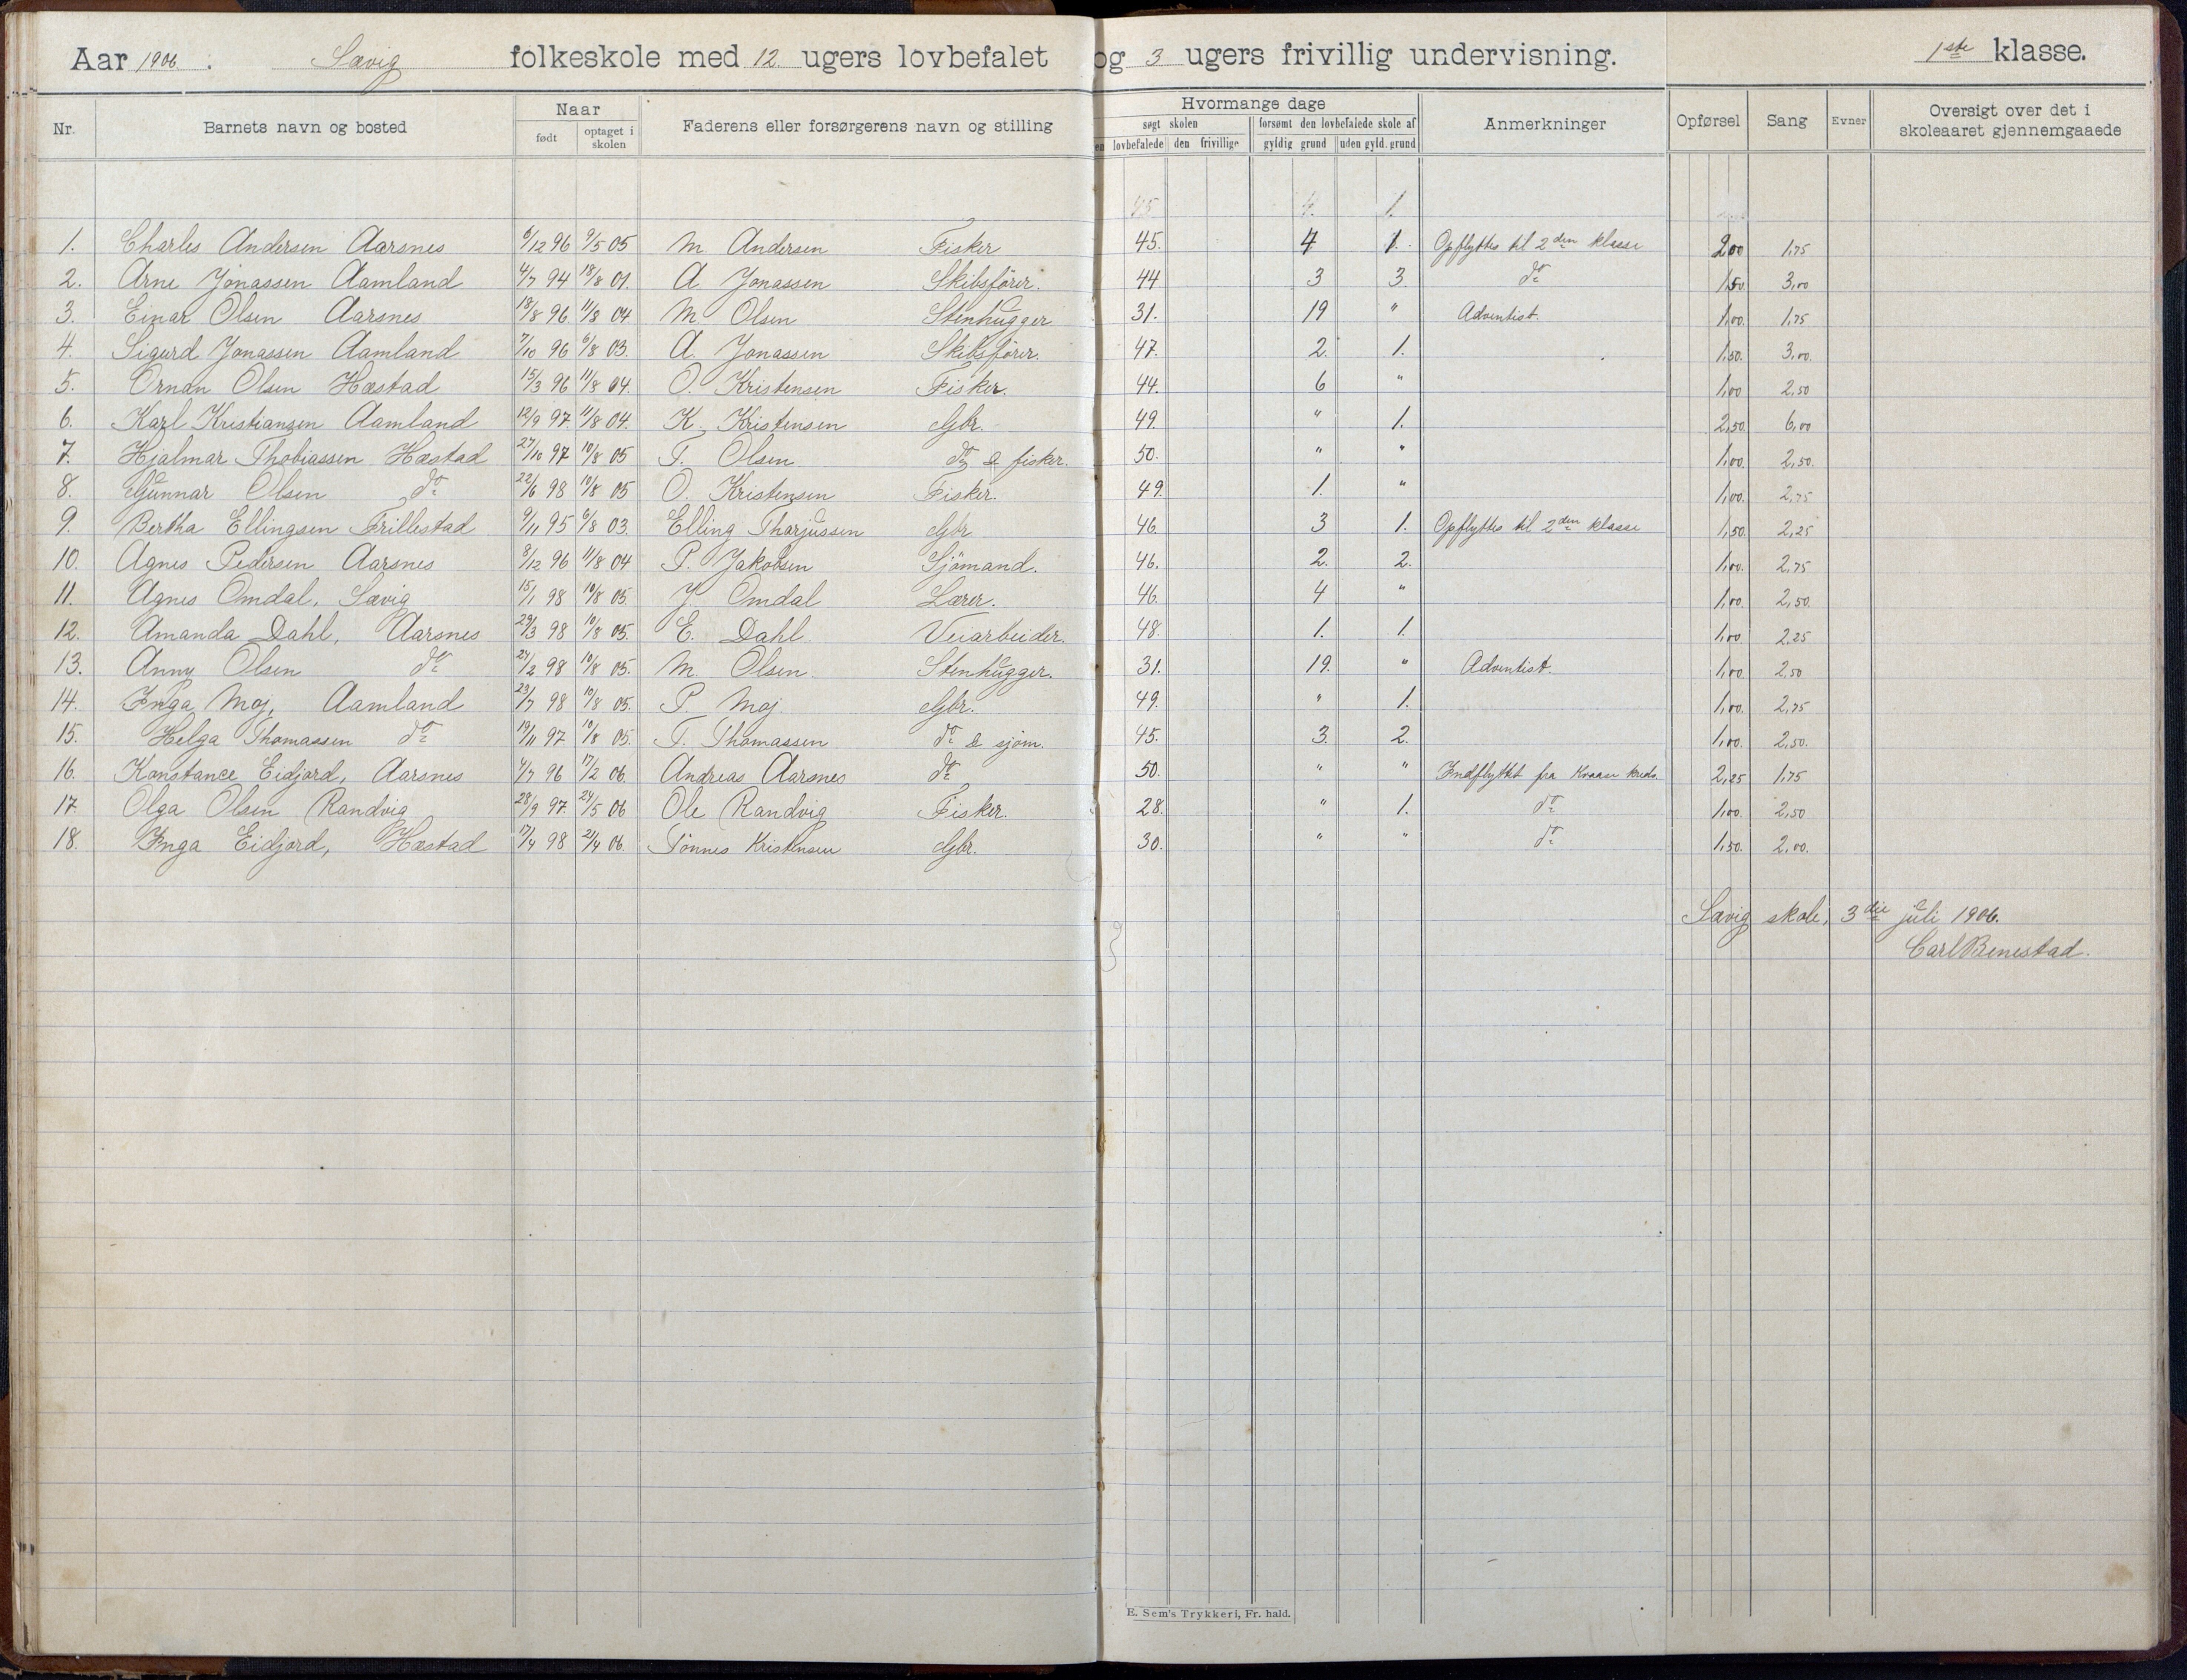 Aar 1906. Sævig folkeskole med 12 ugers lovbefalet og 3 ugers frivillig undervisning. 1ste klasse.
Nr. Barnets navn og bosted Naar født optaget i skolen Faderens eller forsørgerens navn og stilling Hvormange dage søgt skolen lovbefalede den frivillige forsømt den lovbefalede skole af gyldig grund uden gyld. grund Anmerkninger Opførsel Sang Evner Oversigt over det i skoleaaret gjennemgaaede
45 4. 1.
1. Charles Andersen Aarsnes 6/12 96 9/5 05 M Andersen Fisker 45. 4 1. Opflyttes til 2den klasse 2,00 1,75
2. Arne Jonassen Aamland 4/7 94 18/8 01. A Jonassen Skibsfører. 44 3 3 do 1,50. 3,00
3. Einar Olsen Aarsnes 18/8 96 11/8 04 M Olsen Stenhugger 31. 19 " Adventist. 1,00. 1,75
4. Sigurd Jonassen Aamland 7/10 96 6/8 03. A. Jonassen Skibsfører. 47. 2. 1. 1,50. 3,00.
5. Ornan Olsen Hæstad 15/3 96 11/8 04. O. Kristensen Fisker. 44. 6 " 1,00 2,50
6. Karl Kristiansen Aamland 12/9 97. 11/8 04. K. Kristensen Gbr. 49. " 1. 2,50. 6,00
7. Hjalmar Thobiassen Hæstad 27/10 97 10/8 05 T. Olsen do & fisker. 50. " " 1,00. 2,50.
8. Gunnar Olsen do 22/6 98 10/8 05 O. Kristensen Fisker. 49. 1. " 1,00. 2,75
9. Bertha Ellingsen Frillestad 9/11 95 6/8 03. Elling Tharjussen Gbr 46. 3 1. Opflyttes til 2den klasse 1,50. 2,25
10. Agnes Pedersen Aarsnes 8/12 96 11/8 04 P. Jakobsen Sjömand. 46. 2. 2. 1,00. 2,75
11. Agnes Omdal, Sævig 15/1 98 10/8 05. J Omdal Lærer. 46. 4 " 1,00. 2,50.
12. Amanda Dahl, Aarsnes 29/3 98 10/8 05. E. Dahl. Veiarbeider. 48. 1. 1. 1,00 2.25
13. Anny Olsen do 24/2 98 10/8 05. M. Olsen. Stenhugger. 31. 19. " Adventist. 1,00. 2,50
14. Inga Moj, Aamland 23/7 98 10/8 05. P Moj. Gbr. 49. " 1. 1,00. 2,75
15. Helga Thomassen do 19/11 97 10/8 05. T. Thomassen do & sjöm. 45. 3. 2. 1,00. 2,50.
16. Konstance Eidjord, Aarsnes 4/7 96 17/2 06. Andreas Aarsnes do 50. " " Indflyttet fra Kvaase kreds. 2,25 1,75
17. Olga Olsen Randvig 28/9 97. 24/5 06 Ole Randvig Fisker. 28. " 1. do 1,00. 2,50
18. Inga Eidjord, Hæstad 17/4 98 21/4 06. Tönnes Kristensen Gbr. 30. " " do 1,50. 2,00.
Sævig skole, 3die juli 1906.
Carl Benestad.
E. Sem's Trykkeri, Fr. hald.